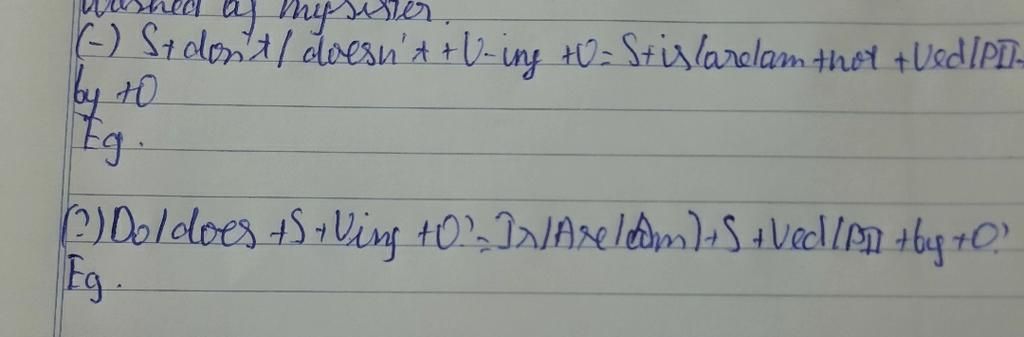 washed by my sister.
(-) S+don't/doesn't +V-ing +O = S+is/are/am +not +Ved/PII-
by +O
Eg.
(?) Do/does +S+Ving +O? = Is/Are/(Am) +S +Ved/PII +by +O?
Eg.